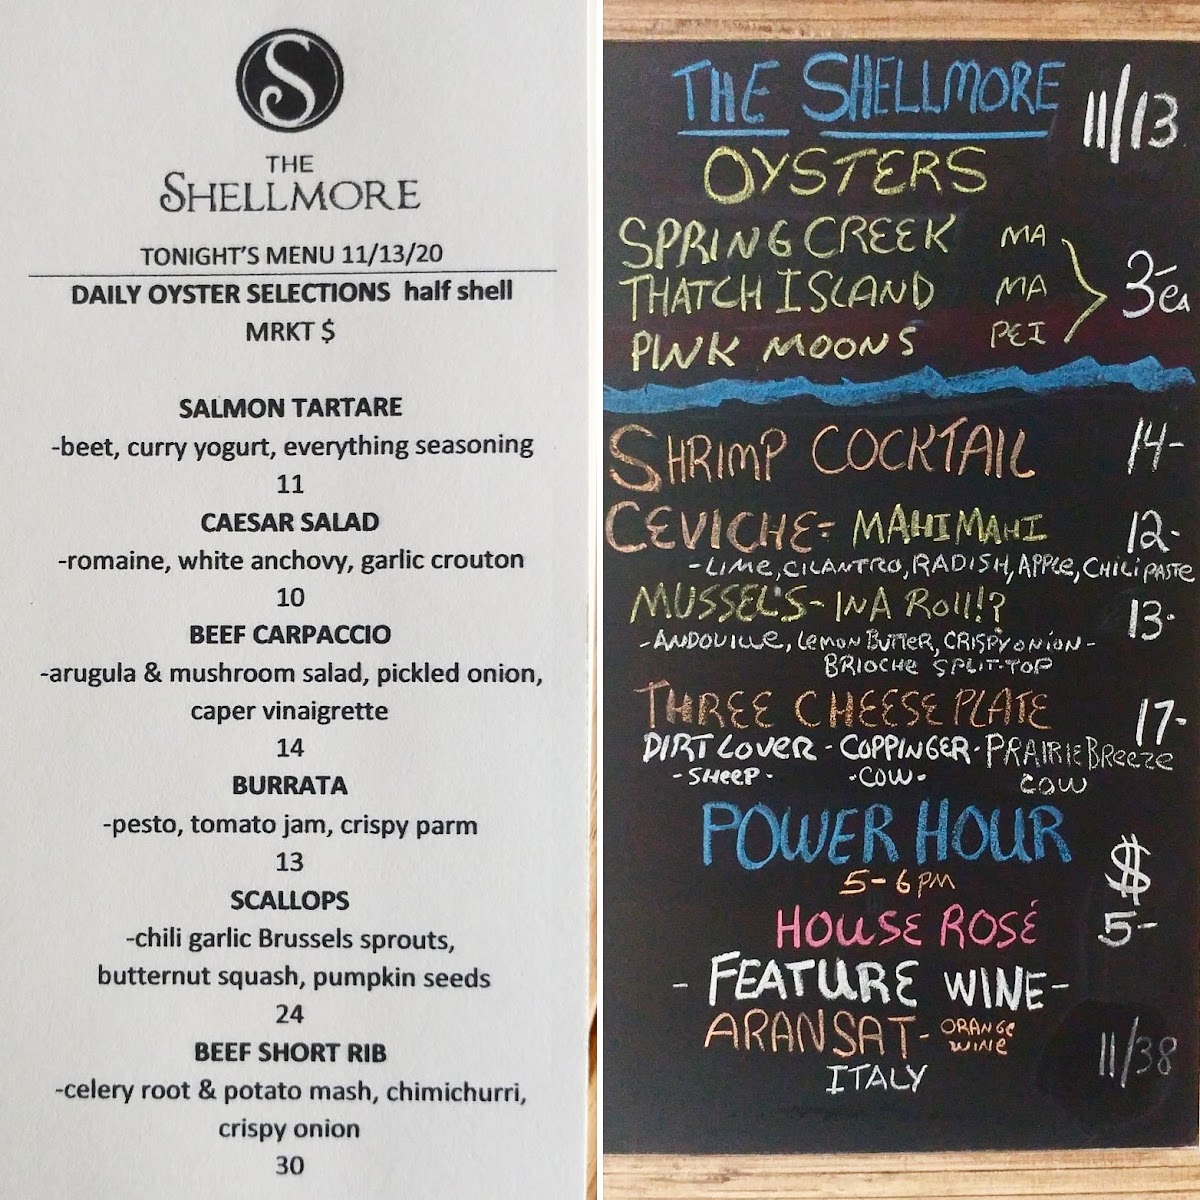 S
THE
SHELLMORE
TONIGHT'S MENU 11/13/20
DAILY OYSTER SELECTIONS half shell
MRKT $
SALMON TARTARE
-beet, curry yogurt, everything seasoning
11
CAESAR SALAD
-romaine, white anchovy, garlic crouton
10
BEEF CARPACCIO
-arugula & mushroom salad, pickled onion,
caper vinaigrette
14
BURRATA
-pesto, tomato jam, crispy parm
13
SCALLOPS
-chili garlic Brussels sprouts,
butternut squash, pumpkin seeds
24
BEEF SHORT RIB
-celery root & potato mash, chimichurri,
crispy onion
30
THE SHELLMORE 11/13
OYSTERS
SPRING CREEK MA
THATCH ISLAND MA 3-ea
PINK MOONS PEI
SHRIMP COCKTAIL 14-
CEVICHE- MAHI MAHI 12-
-LIME, CILANTRO, RADISH, APPLE, CHILI PASTE
MUSSELS- IN A Roll!? 13-
-ANDOUILLE, LEMON BUTTER, CRISPY ONION-
BRIOCHE SPLIT-TOP
THREE CHEESE PLATE 17-
DIRT LOVER - COPPINGER - PRAIRIE BREEZE
-SHEEP- -COW- COW
POWER HOUR
5-6PM $
HOUSE ROSÉ 5-
- FEATURE WINE -
ARANSAT- ORANGE WINE 11/38
ITALY